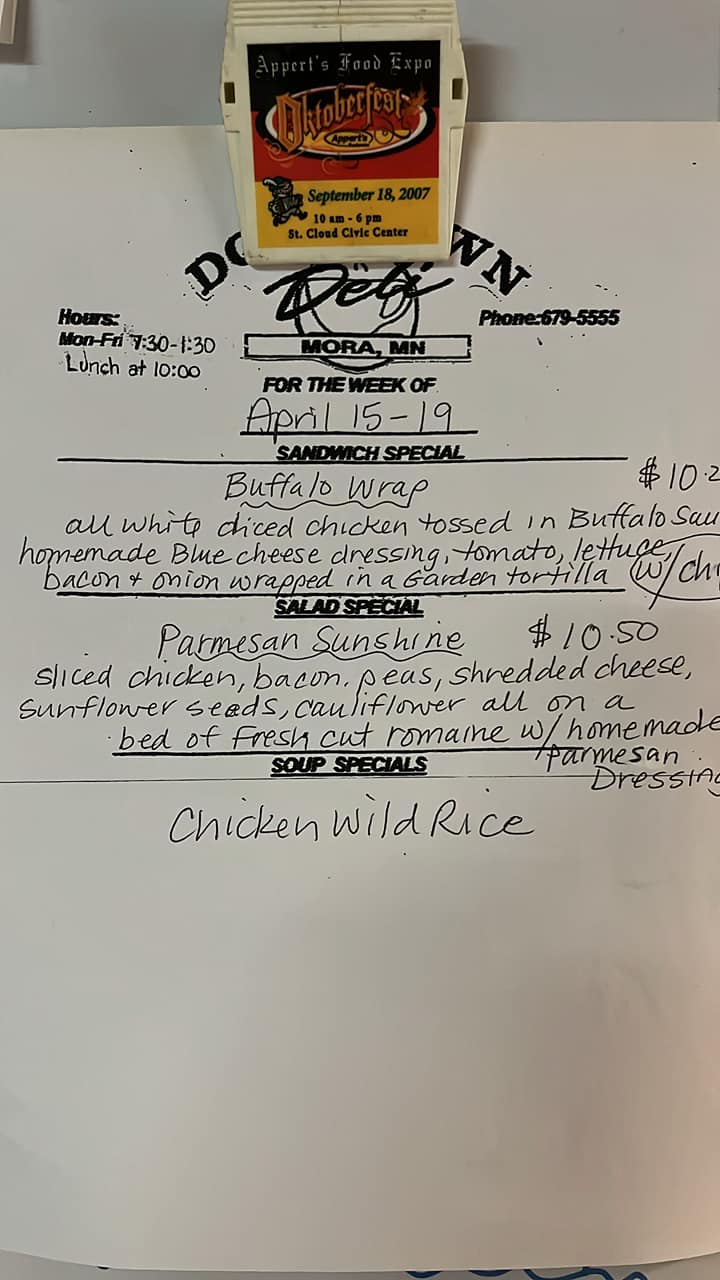 Appert's Food Expo
Oktoberfest
Appert's
September 18, 2007
10 am - 6 pm
St. Cloud Civic Center
Deli
Hours:
Mon-Fri 7:30-1:30
Lunch at 10:00
Phone:679-5555
MORA, MN
FOR THE WEEK OF
April 15-19
SANDWICH SPECIAL
Buffalo Wrap $10.2
all white diced chicken tossed in Buffalo Sau
homemade Blue cheese dressing, tomato, lettuce,
bacon + onion wrapped in a Garden tortilla w/ chi
SALAD SPECIAL
Parmesan Sunshine $10.50
sliced chicken, bacon, peas, shredded cheese,
sunflower seeds, cauliflower all on a
bed of Fresh cut romaine w/ homemade
Parmesan
Dressing
SOUP SPECIALS
Chicken Wild Rice